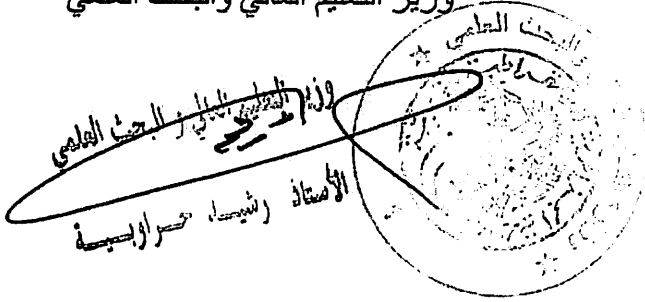 وزير التعليم العالي والبحث العلمي
وزير التعليم العالي و البحث العلمي
الأستاذ رشيد حراوبية
والبحث العلمي